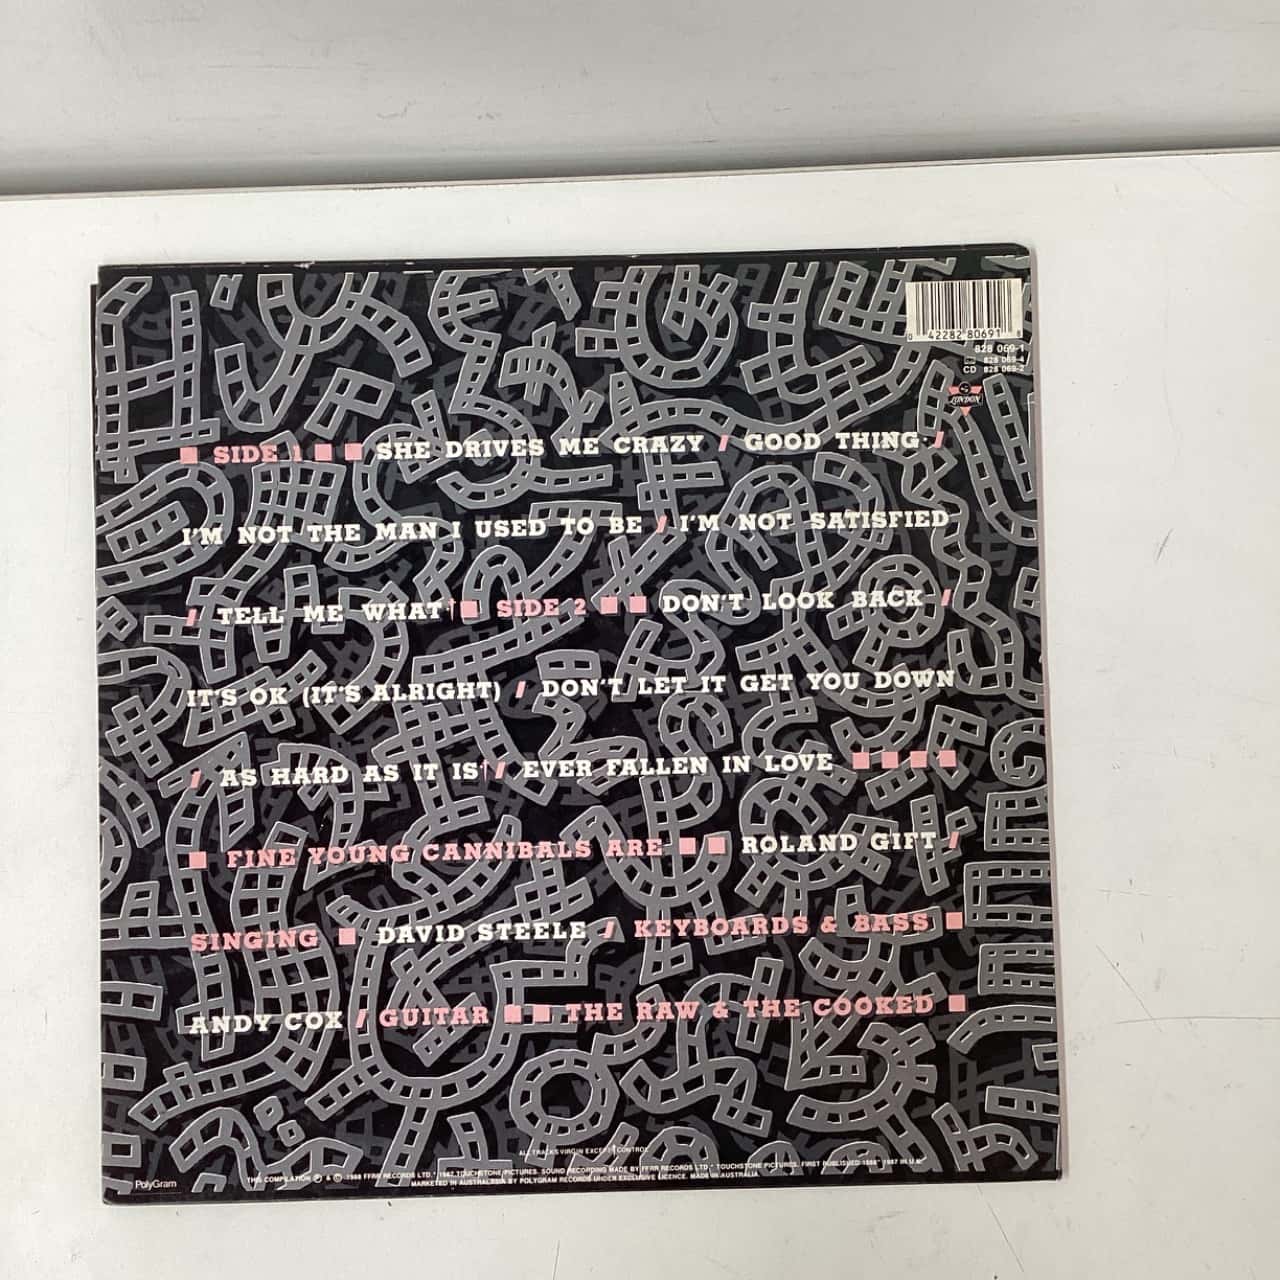 0 42282 80691 8
828 069-1
828 069-4
CD 828 069-2
LONDON
■ SIDE 1 ■ ■ SHE DRIVES ME CRAZY / GOOD THING* /
I'M NOT THE MAN I USED TO BE / I'M NOT SATISFIED
/ TELL ME WHAT† ■ SIDE 2 ■ ■ DON'T LOOK BACK /
IT'S OK (IT'S ALRIGHT) / DON'T LET IT GET YOU DOWN
/ AS HARD AS IT IS† / EVER FALLEN IN LOVE ■ ■ ■ ■
■ FINE YOUNG CANNIBALS ARE ■ ■ ROLAND GIFT /
SINGING ■ DAVID STEELE / KEYBOARDS & BASS ■
ANDY COX / GUITAR ■ ■ THE RAW & THE COOKED ■
ALL TRACKS VIRGIN EXCEPT † CONTROL
THIS COMPILATION Ⓟ & © 1988 FFRR RECORDS LTD. * 1987 TOUCHSTONE PICTURES. SOUND RECORDING MADE BY FFRR RECORDS LTD. * TOUCHSTONE PICTURES. FIRST PUBLISHED 1988 * 1987 IN U.K.
MARKETED IN AUSTRALASIA BY POLYGRAM RECORDS UNDER EXCLUSIVE LICENCE. MADE IN AUSTRALIA
PolyGram